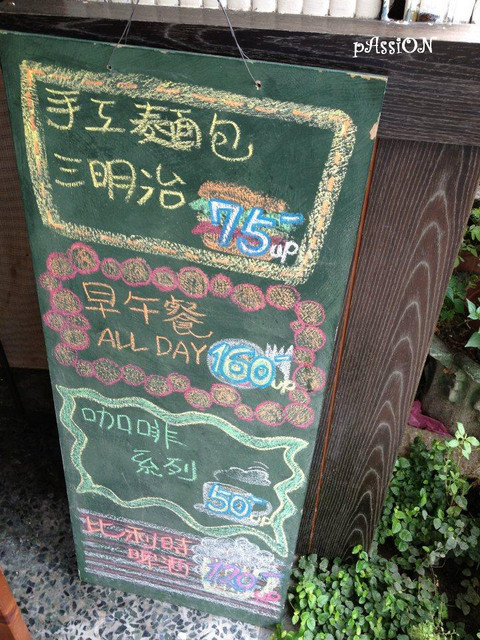 pAssiON
手工麵包
三明治
75-up
早午餐
ALL DAY 160-up
咖啡
系列
50-up
比利時
啤酒
up